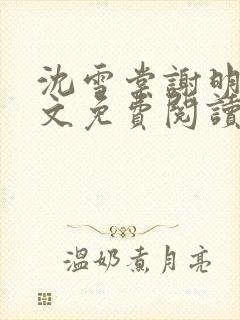 沈雪棠謝明
文免費閱讀
溫奶煮月亮